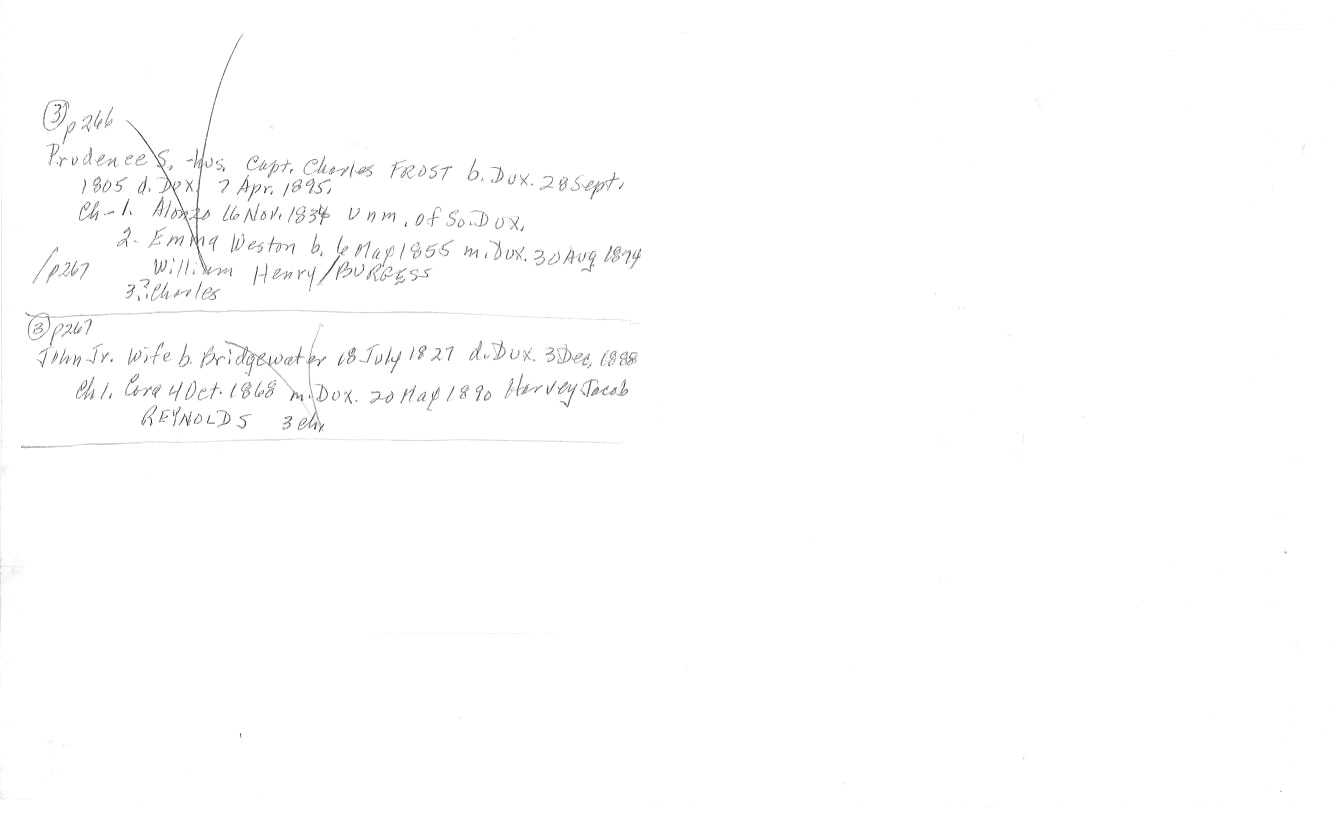 ③ p266
Prudence S. - hus. Capt. Charles FROST b. Dux. 28 Sept.
1805 d. Dux. 7 Apr. 1895.
Ch - 1. Alonzo 16 Nov. 1834 Unm. of So. Dux.
2. Emma Weston b. 6 May 1855 m. Dux. 30 Aug 1874
/p267 William Henry / BURGESS
3.? Charles
③ p267
John Jr. Wife b. Bridgewater 18 July 1827 d. Dux. 3 Dec, 1888
Ch 1. Cora 4 Oct. 1868 m. Dux. 20 May 1890 Harvey Jacob
REYNOLDS 3 ch.